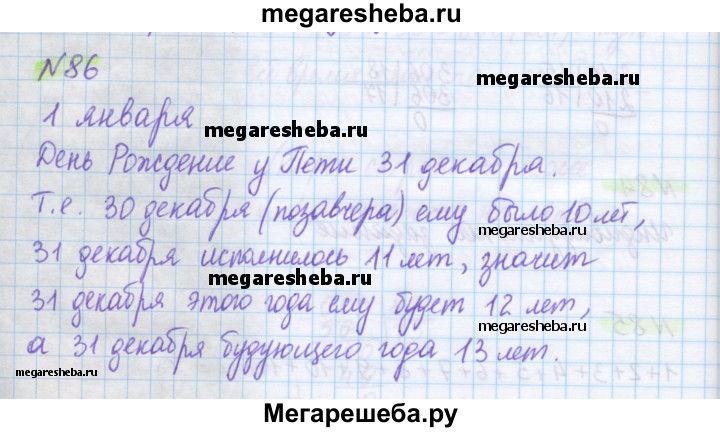 megaresheba.ru
№86
1 января
megaresheba.ru
megaresheba.ru
День Рождение у Пети 31 декабря.
Т.е. 30 декабря (позавчера) ему было 10 лет,
megaresheba.ru
31 декабря исполнилось 11 лет, значит
megaresheba.ru
31 декабря этого года ему будет 12 лет,
megaresheba.ru
а 31 декабря будующего года 13 лет.
megaresheba.ru
Мегарешеба.ру